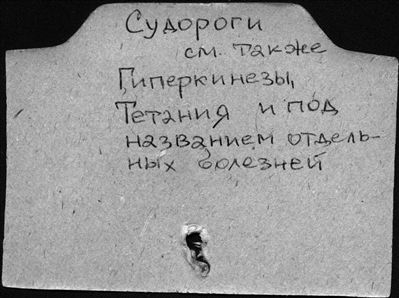 Судороги
см. также
Гиперкинезы,
Тетания и под
названием отдель-
ных болезней